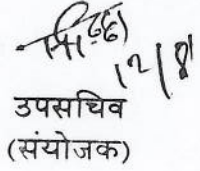 12/8
उपसचिव
(संयोजक)